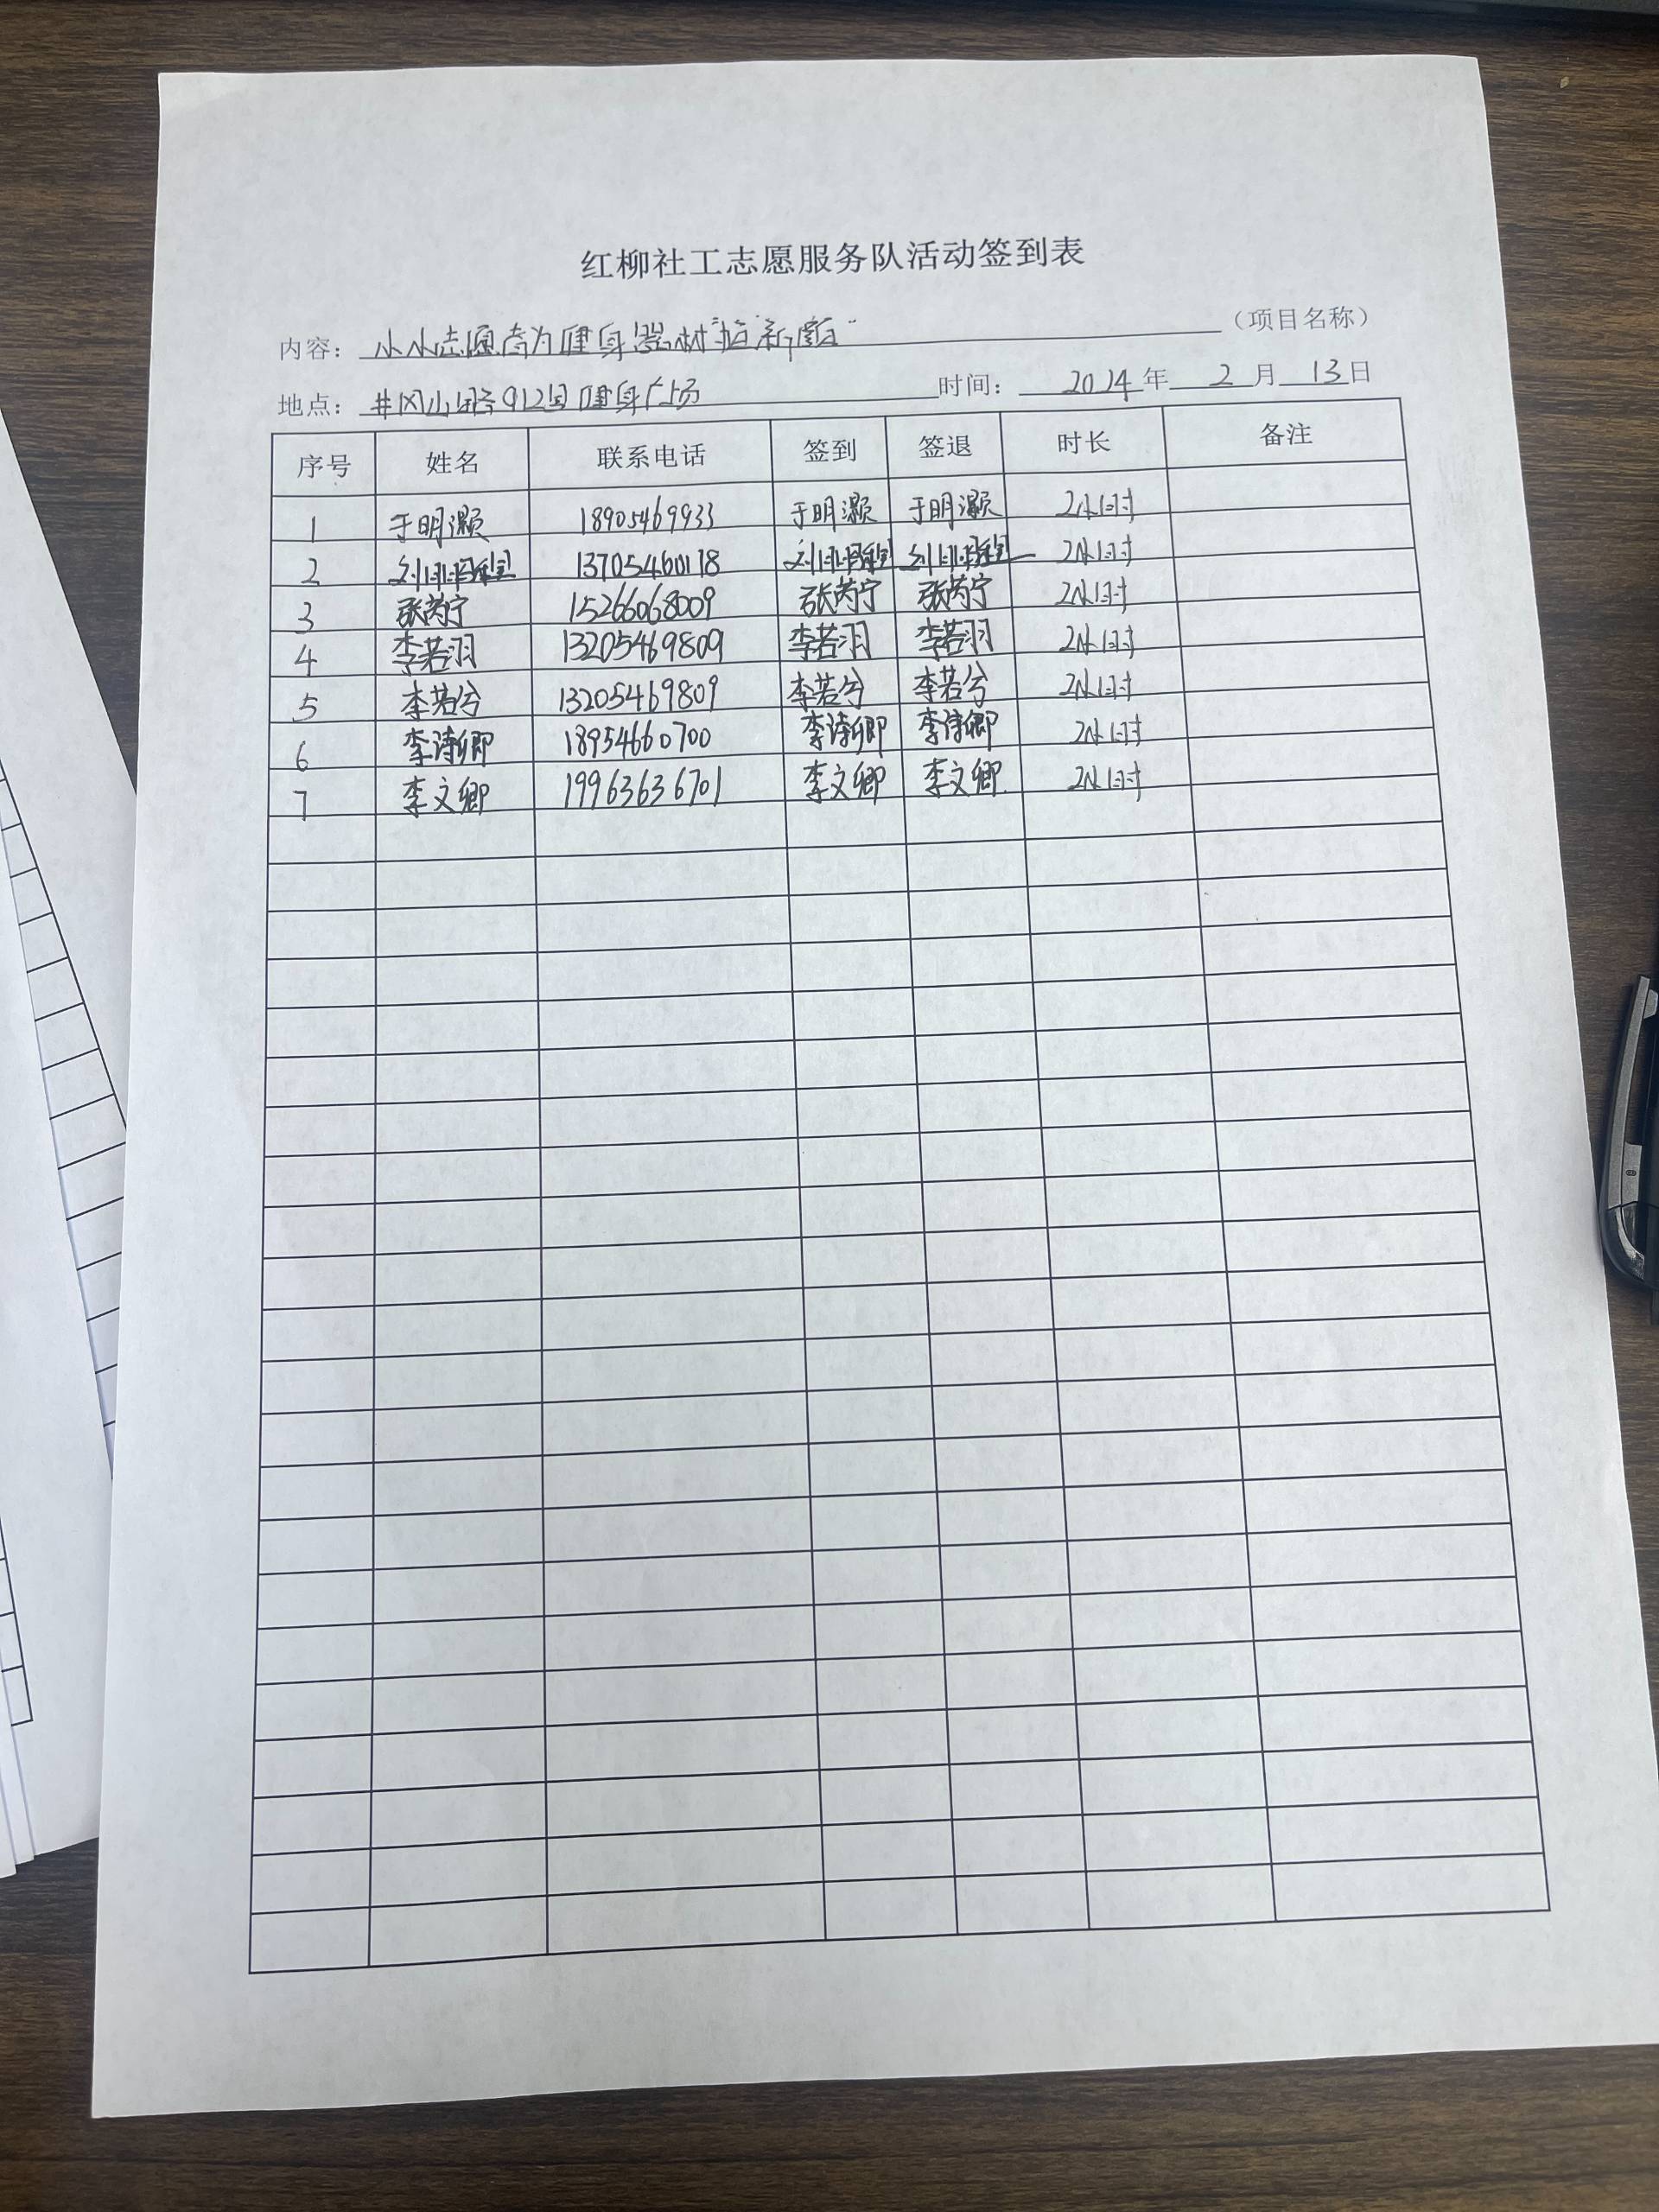 红柳社工志愿服务队活动签到表
内容： 小小志愿者为健身器材"焕新颜" （项目名称）
地点： 井冈山路912园健身广场 时间： 2024 年 2 月 13 日
序号 姓名 联系电话 签到 签退 时长 备注
1 于明灏 18905469933 于明灏 于明灏 2小时
2 13705460178 2小时
3 张芮宁 15266068009 张芮宁 张芮宁 2小时
4 李若羽 13205469809 李若羽 李若羽 2小时
5 李若兮 13205469809 李若兮 李若兮 2小时
6 李诗卿 18954660700 李诗卿 李诗卿 2小时
7 李文卿 19963636701 李文卿 李文卿 2小时